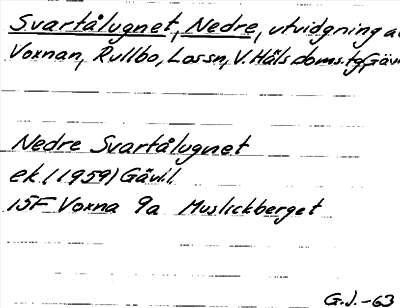 Svartålugnet, Nedre, utvidgning a
Voxnan, Rullbo, Lossn, V. Häls doms.tg, Gäv
Nedre Svartålugnet
ek. (1959) Gävl.
15F Voxna 9a Muslickberget
G.J. -63